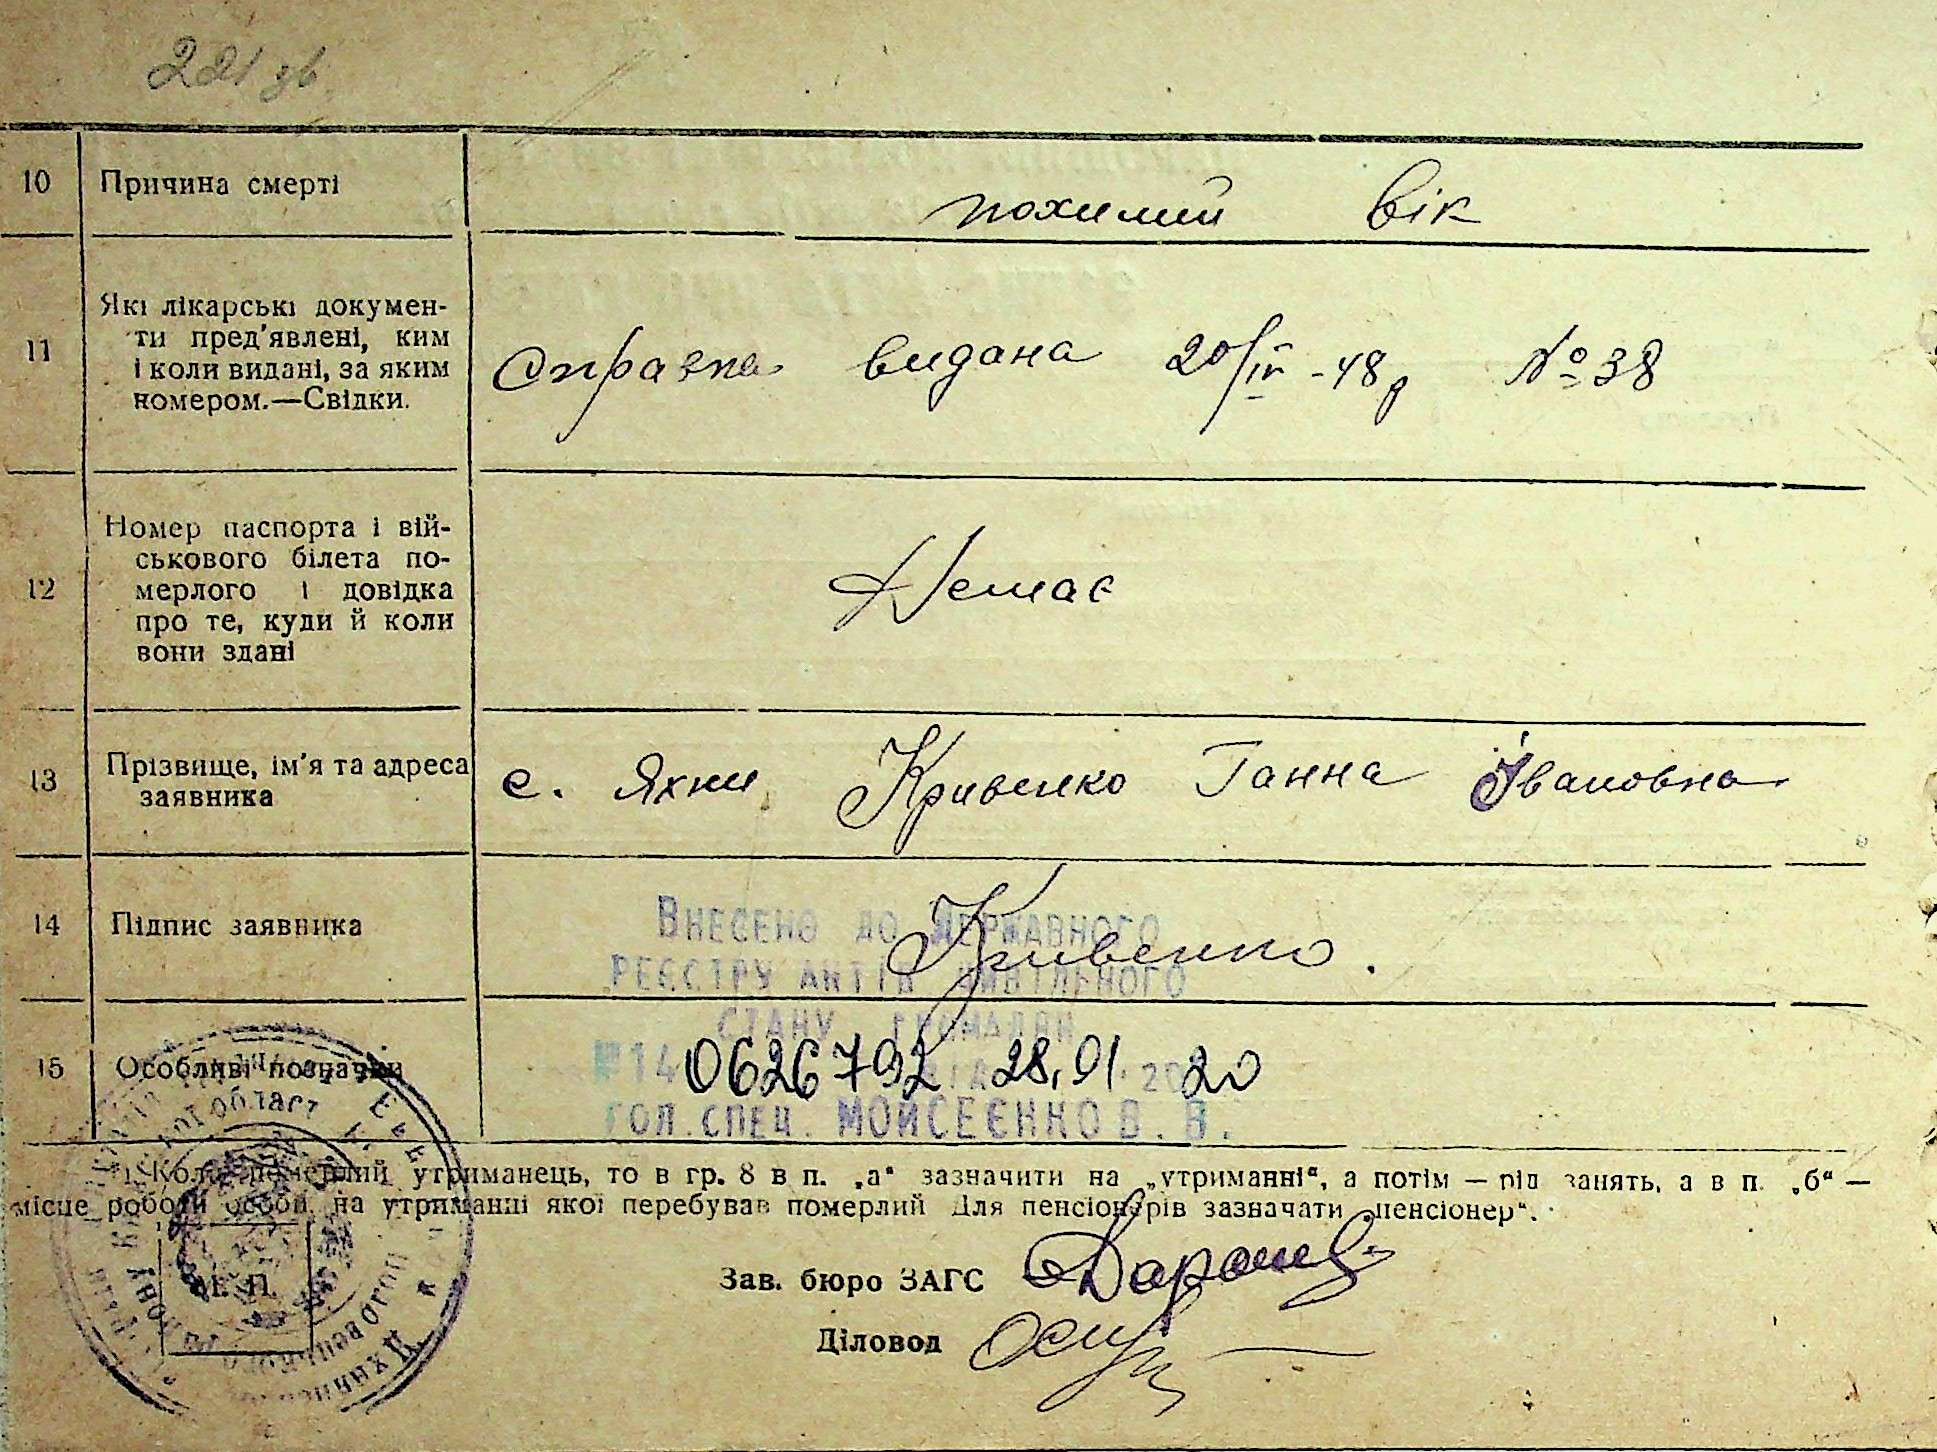 221 зв
10 Причина смерті
похилий вік
11 Які лікарські докумен-
ти пред'явлені, ким
і коли видані, за яким
номером.—Свідки.
Справка видана 20/IV-48р №38
12 Номер паспорта і вій-
ськового білета по-
мерлого і довідка
про те, куди й коли
вони здані
Немає
13 Прізвище, ім'я та адреса
заявника
с. Яхни Кривенко Ганна Івановна
14 Підпис заявника
Кривенко.
Внесено до Державного
реєстру актів цивільного
стану громадян
15 Особливі позначки
№ 140626792 від 28.01.2020
гол. спец. Мойсеєнко В. В.
1) Коли померлий утриманець, то в гр. 8 в п. „а“ зазначити на „утриманні“, а потім — рід занять, а в п. „б“ —
місце роботи особи, на утриманні якої перебував померлий Для пенсіонерів зазначати „пенсіонер“.
Зав. бюро ЗАГС
Діловод
М. П.